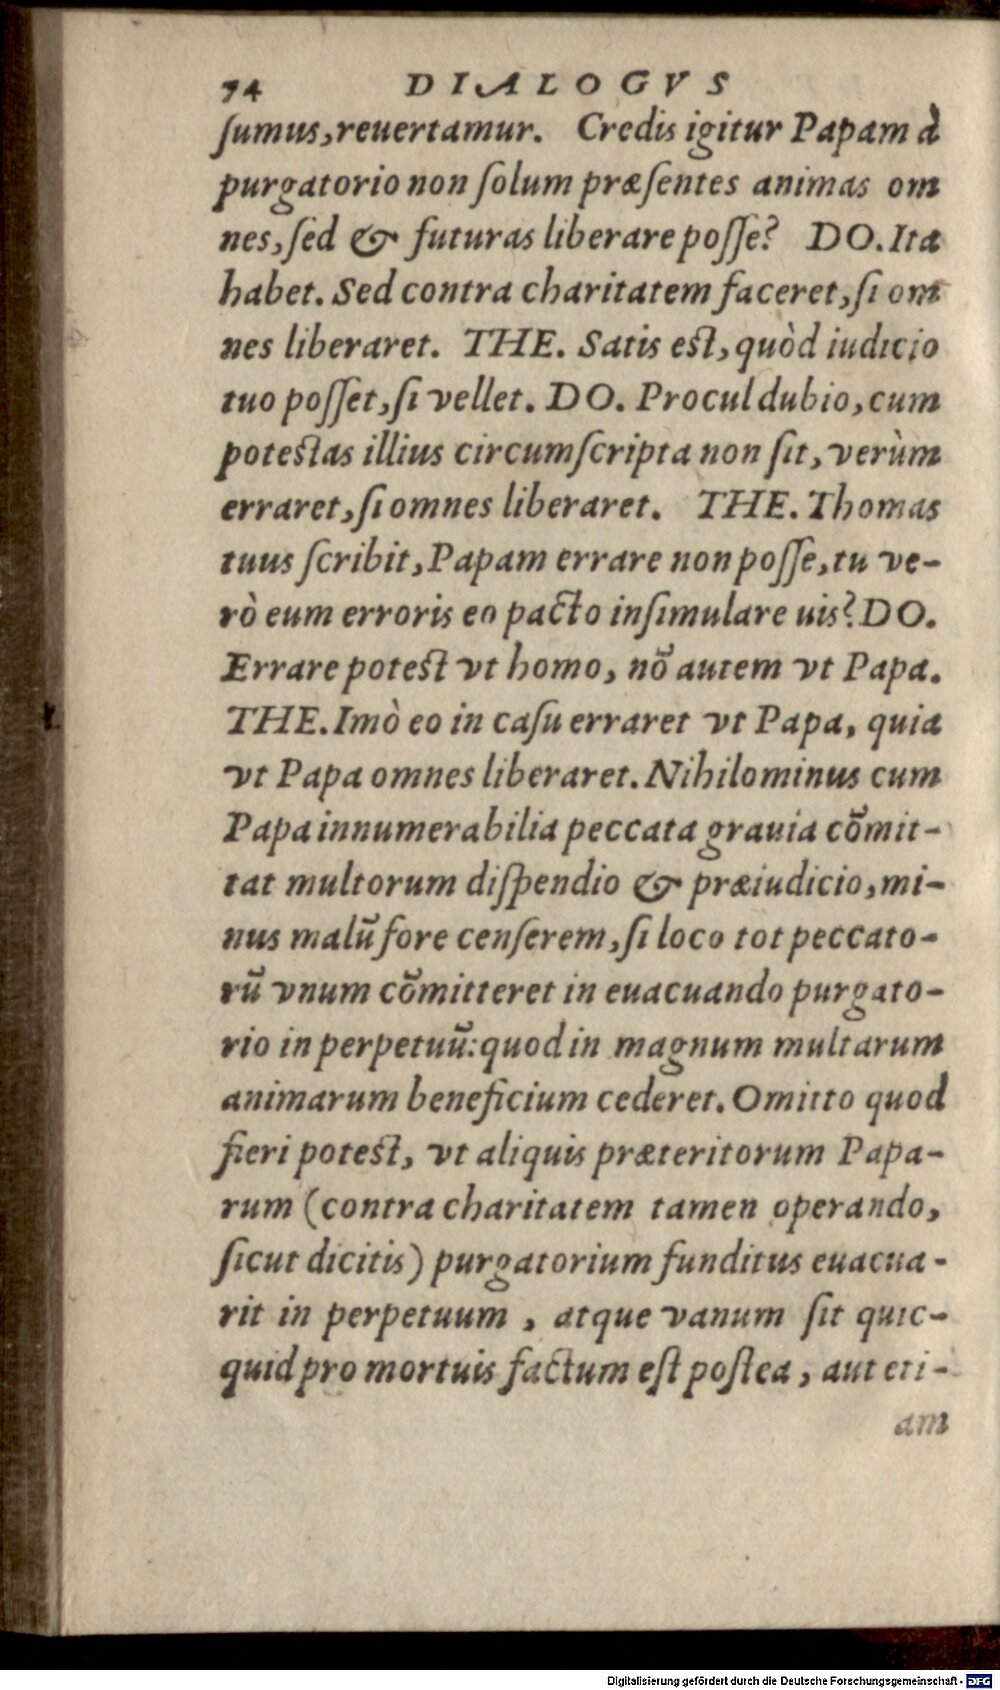 74 DIALOGVS
ſumus, reuertamur. Credis igitur Papam à
purgatorio non ſolum præſentes animas om
nes, ſed & futuras liberare poſſe? DO. Ita
habet. Sed contra charitatem faceret, ſi om
nes liberaret. THE. Satis eſt, quòd iudicio
tuo poſſet, ſi vellet. DO. Procul dubio, cum
poteſtas illius circumſcripta non ſit, verùm
erraret, ſi omnes liberaret. THE. Thomas
tuus ſcribit, Papam errare non poſſe, tu ve-
rò eum erroris eo pacto inſimulare uis? DO.
Errare poteſt vt homo, nõ autem vt Papa.
THE. Imò eo in caſu erraret vt Papa, quia
vt Papa omnes liberaret. Nihilominus cum
Papa innumerabilia peccata grauia cõmit-
tat multorum diſpendio & præiudicio, mi-
nus malũ fore cenſerem, ſi loco tot peccato-
rũ vnum cõmitteret in euacuando purgato-
rio in perpetuũ: quod in magnum multarum
animarum beneficium cederet. Omitto quod
fieri poteſt, vt aliquis præteritorum Papa-
rum (contra charitatem tamen operando,
ſicut dicitis) purgatorium funditus euacua-
rit in perpetuum, atque vanum ſit quic-
quid pro mortuis factum eſt poſtea, aut eti-
am
Digitalisierung gefördert durch die Deutsche Forschungsgemeinschaft - DFG